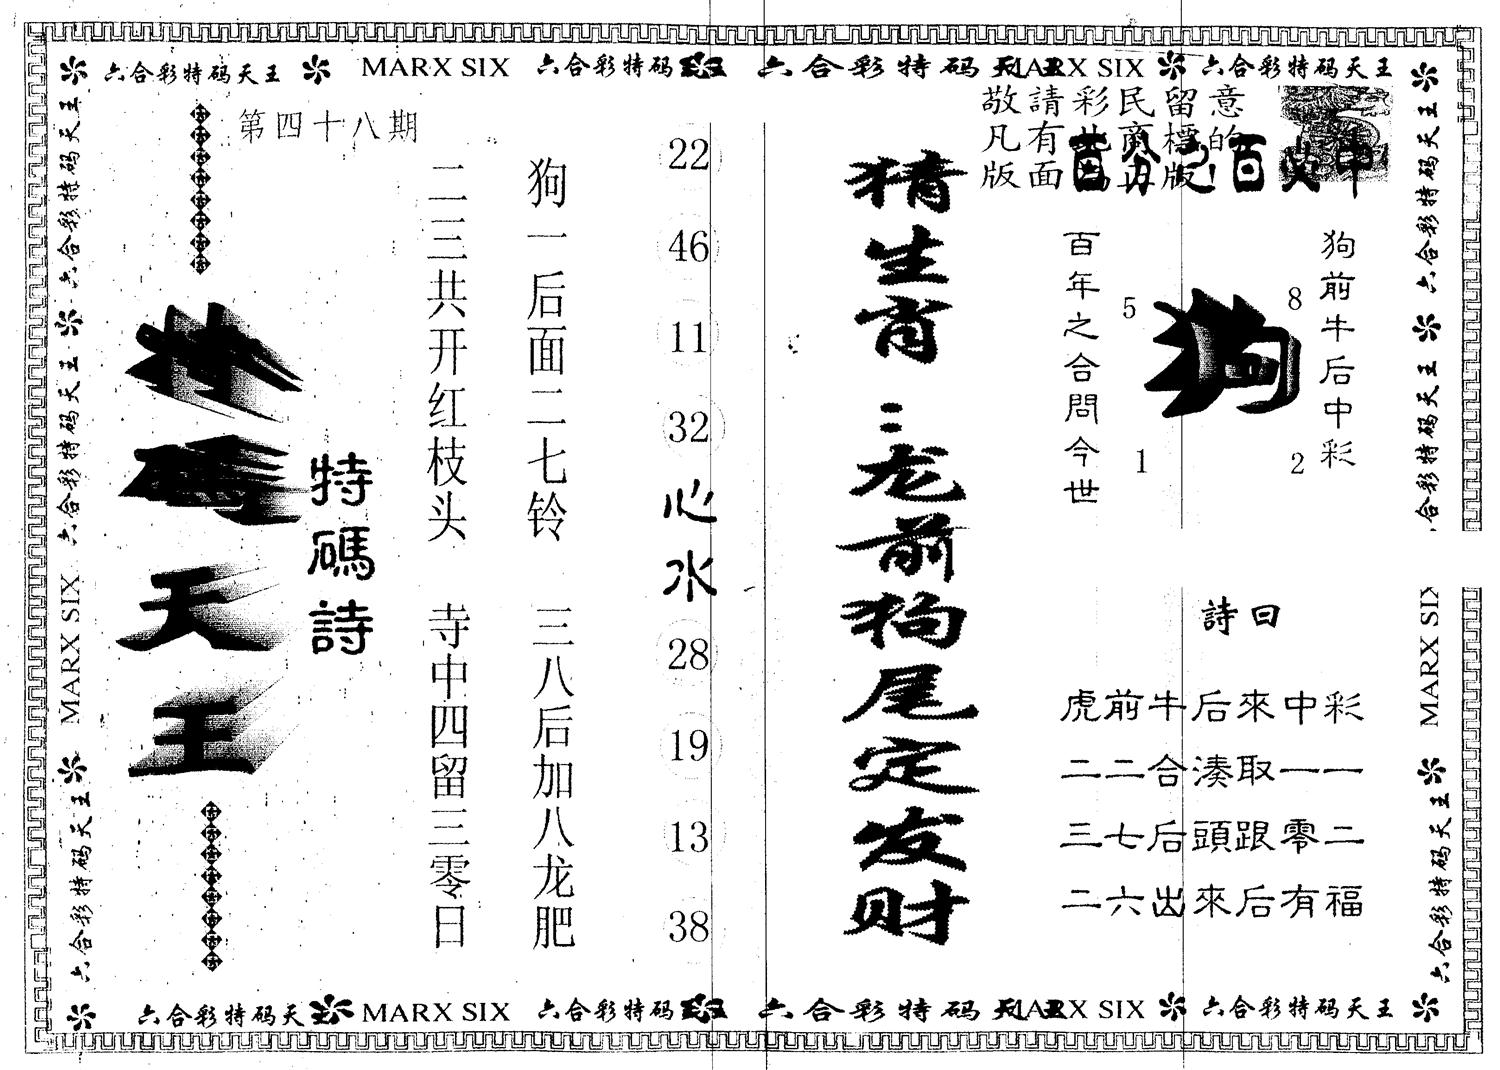 六合彩特码天王
MARX SIX
六合彩特码
六合彩特码天王
MARX SIX
六合彩特码天王
第四十八期
特码天王
特碼詩
狗一后面二七铃
三八后加八龙肥
二三共开红枝头
寺中四留三零日
22
46
11
32
心水
28
19
13
38
猜生肖:龙前狗尾定发财
敬請彩民留意
凡有 商標的
版面 版
百 百 中
狗前牛后中彩
百年之合問今世
狗
5
8
1
2
詩曰
虎前牛后來中彩
二二合湊取一一
三七后頭跟零二
二六出來后有福
六合彩特码天王
六合彩特码天王
六合彩特码天王
MARX SIX
六合彩特码天王
六合彩特码天王
六合彩特码天王
MARX SIX
六合彩特码天王
六合彩特码天王
MARX SIX
六合彩特码
六合彩特码天王
MARX SIX
六合彩特码天王